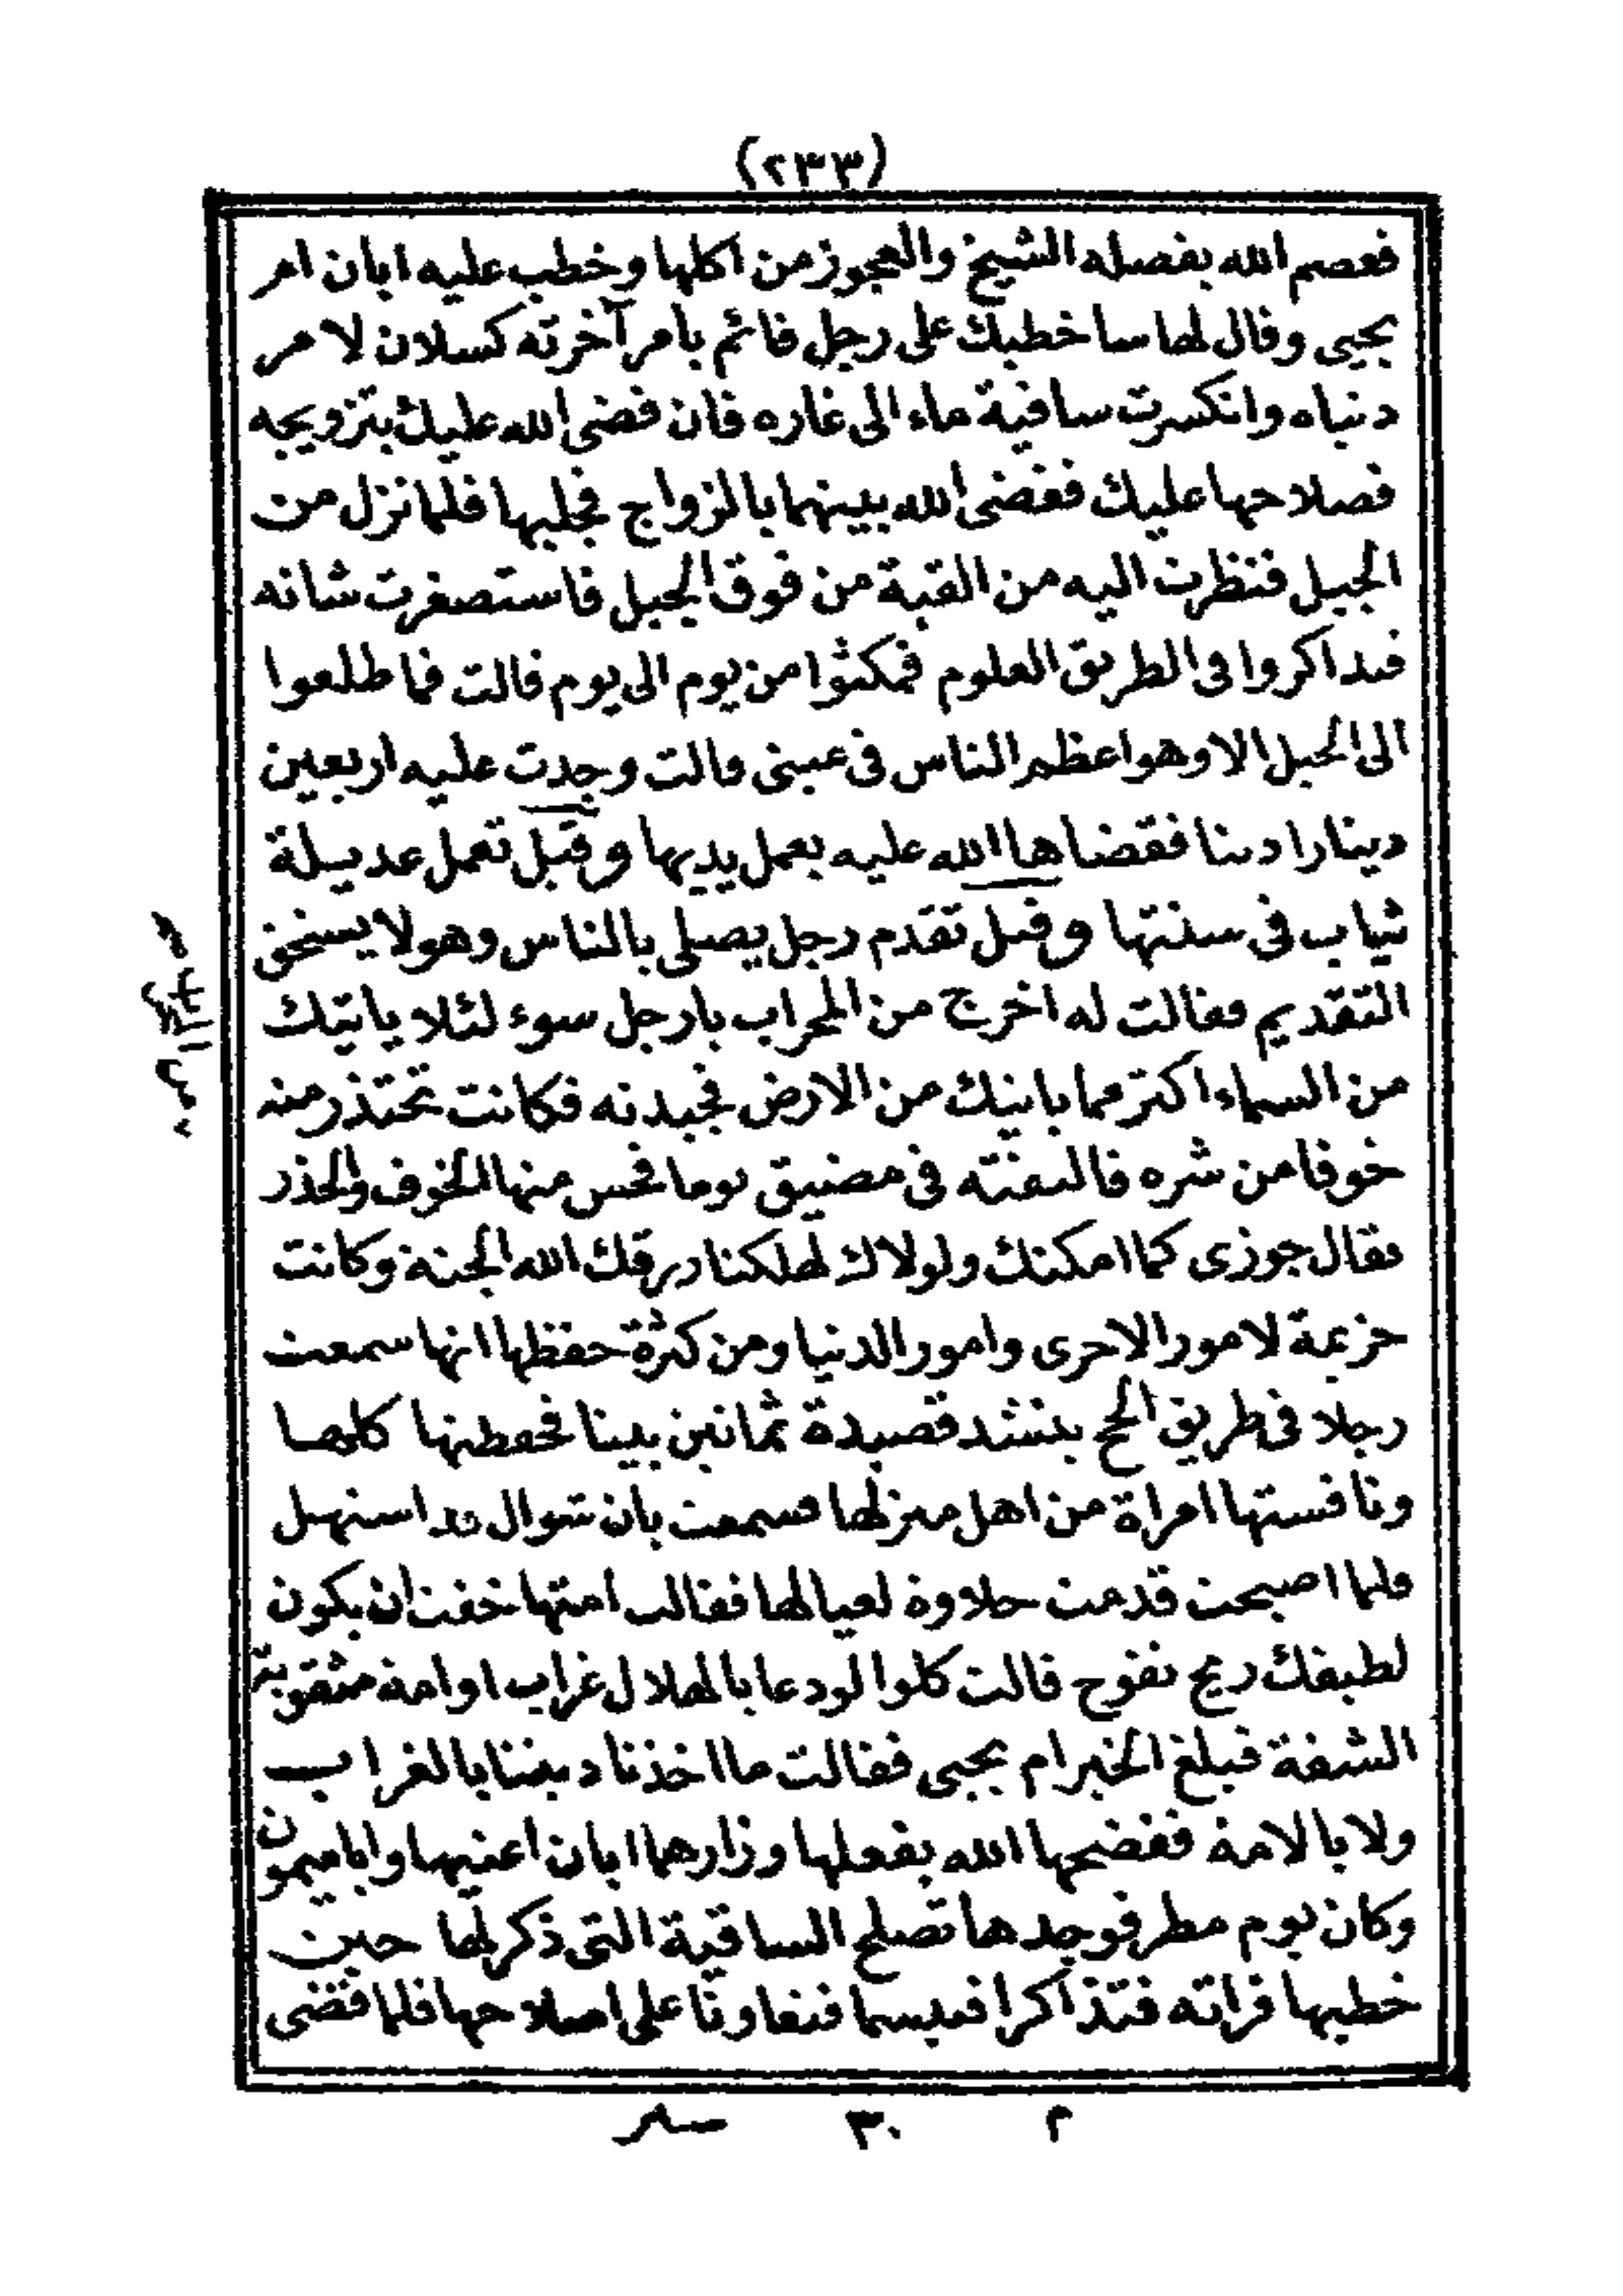 (٢٣٣)
فعصم الله بفضله الشيخ والعجوز من اكلها وخطب عليه ابان ام
يحيى وقال لها ساخطبك على رجل قائم بامر آخرته كسلان لامر
دنياه وانكسرت ساقية ماء الى غاره فان قضى الله عليك بتزويجه
فصلاحها عليك فقضى الله بينهما بالزواج فجلبها فلما نزل من
الجبل فنظرت اليه من القبة من فوق الجبل فاستصغرت شانه
فتذاكروا فى الطريق العلوم فمكثوا من يوم الى يوم قالت فما طلعوا
الى الجبل الا وهو اعظم الناس فى عينى قالت وجدت عليه اربعين
دينارا دينا فقضاها الله عليه بعمل يديها وقيل تعمل عديلة
ثياب فى سنتها وقيل تقدم رجل يصلى بالناس وهو لا يستحق
التقديم فقالت له اخرج من المحراب يا رجل سوء لئلا ياتيك
من السماء اكثر مما ياتيك من الارض فجبدته فكانت تحتذر منه
خوفا من شره فالتقته فى مضيق يوما فحس منها الخوف والحذر
فقال جوزى كما امكنك ولولاك لهلكنا رزقك الله الجنة وكانت
حزيمة لامور الاخرى وامور الدنيا ومن كثرة حفظها انها سمعت
رجلا فى طريق الحج ينشد قصيدة ثمانين بيتا فحفظتها كلها
ونافستها امراة من اهل منزلها فسمعت بان شوال قد استهل
فلما اصبحت قدمت حلاوة لعيالها فقالت امتها خفت ان يكون
لطبقك ريح تفوح قالت كلوا لودعا بالهلال غراب او امة مثقوبة
الشفة فبلغ الخبر ام يحيى فقالت ما اخذنا ديننا بالغراب
ولا بالامة ففضحها الله بفعلها وزارهما ابان اعنيها وابا ميمون
وكان يوم مطر فوجدها تصلح الساقية التى ذكر لها حين
خطبها فراته فتذاكرا فتبسما فتعاونا على اصلاحها فلما قضى
م ٣٠ سير